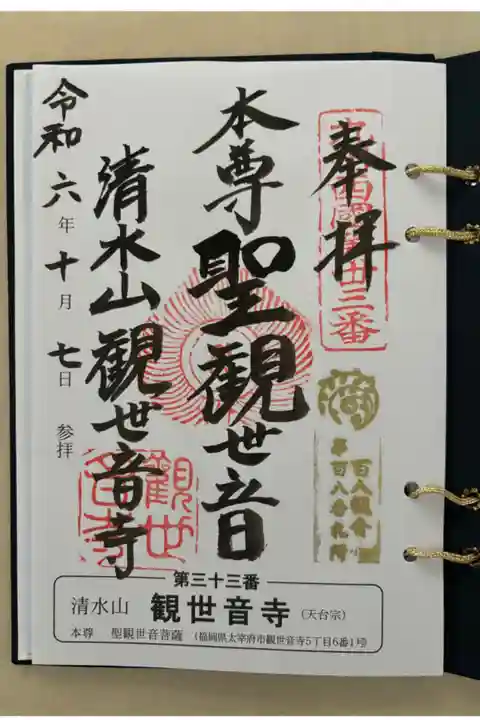 奉拝
九州西國第卅三番
本尊 聖観世音
清水山 観世音寺
令和六年十月七日 参拝
観世音寺
第三十三番
清水山 観世音寺 (天台宗)
本尊 聖観世音菩薩 (福岡県太宰府市観世音寺5丁目6番1号)